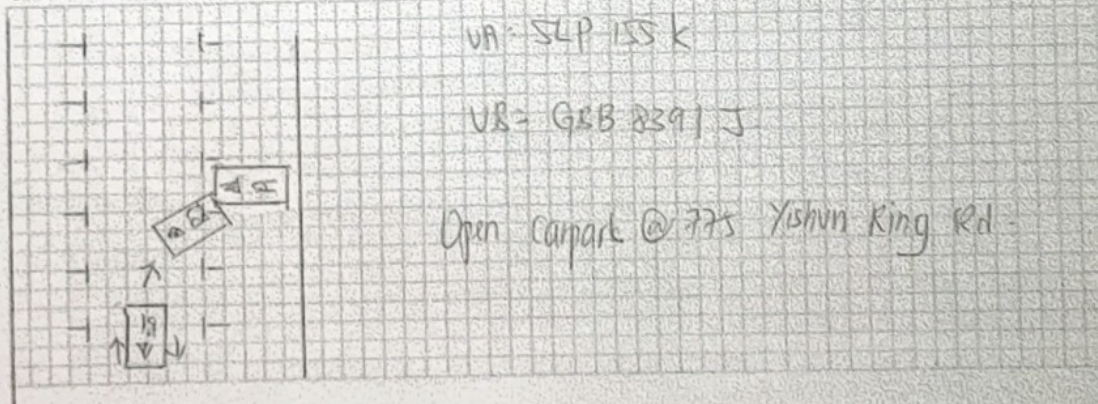 VA: SLP 155 K
VB= GBB 8391 J
Open Carpark @ 775 Yishun Ring Rd.
A
B1